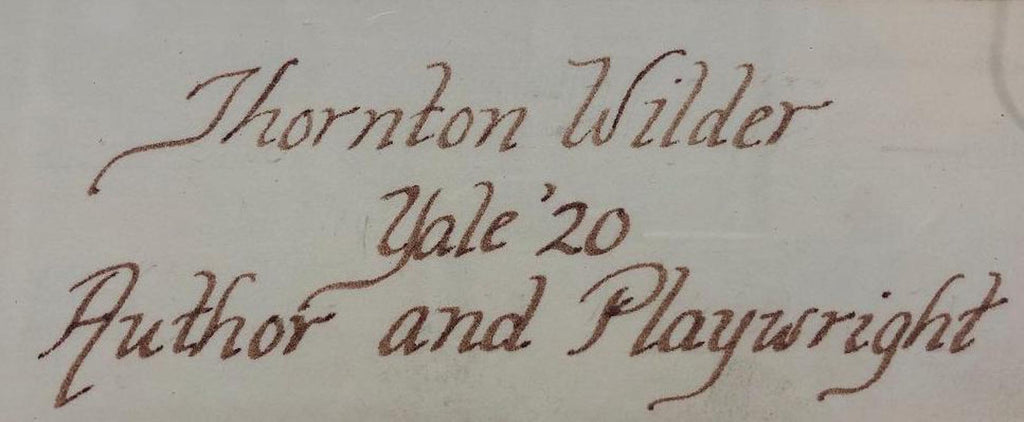 Thornton Wilder
Yale '20
Author and Playwright